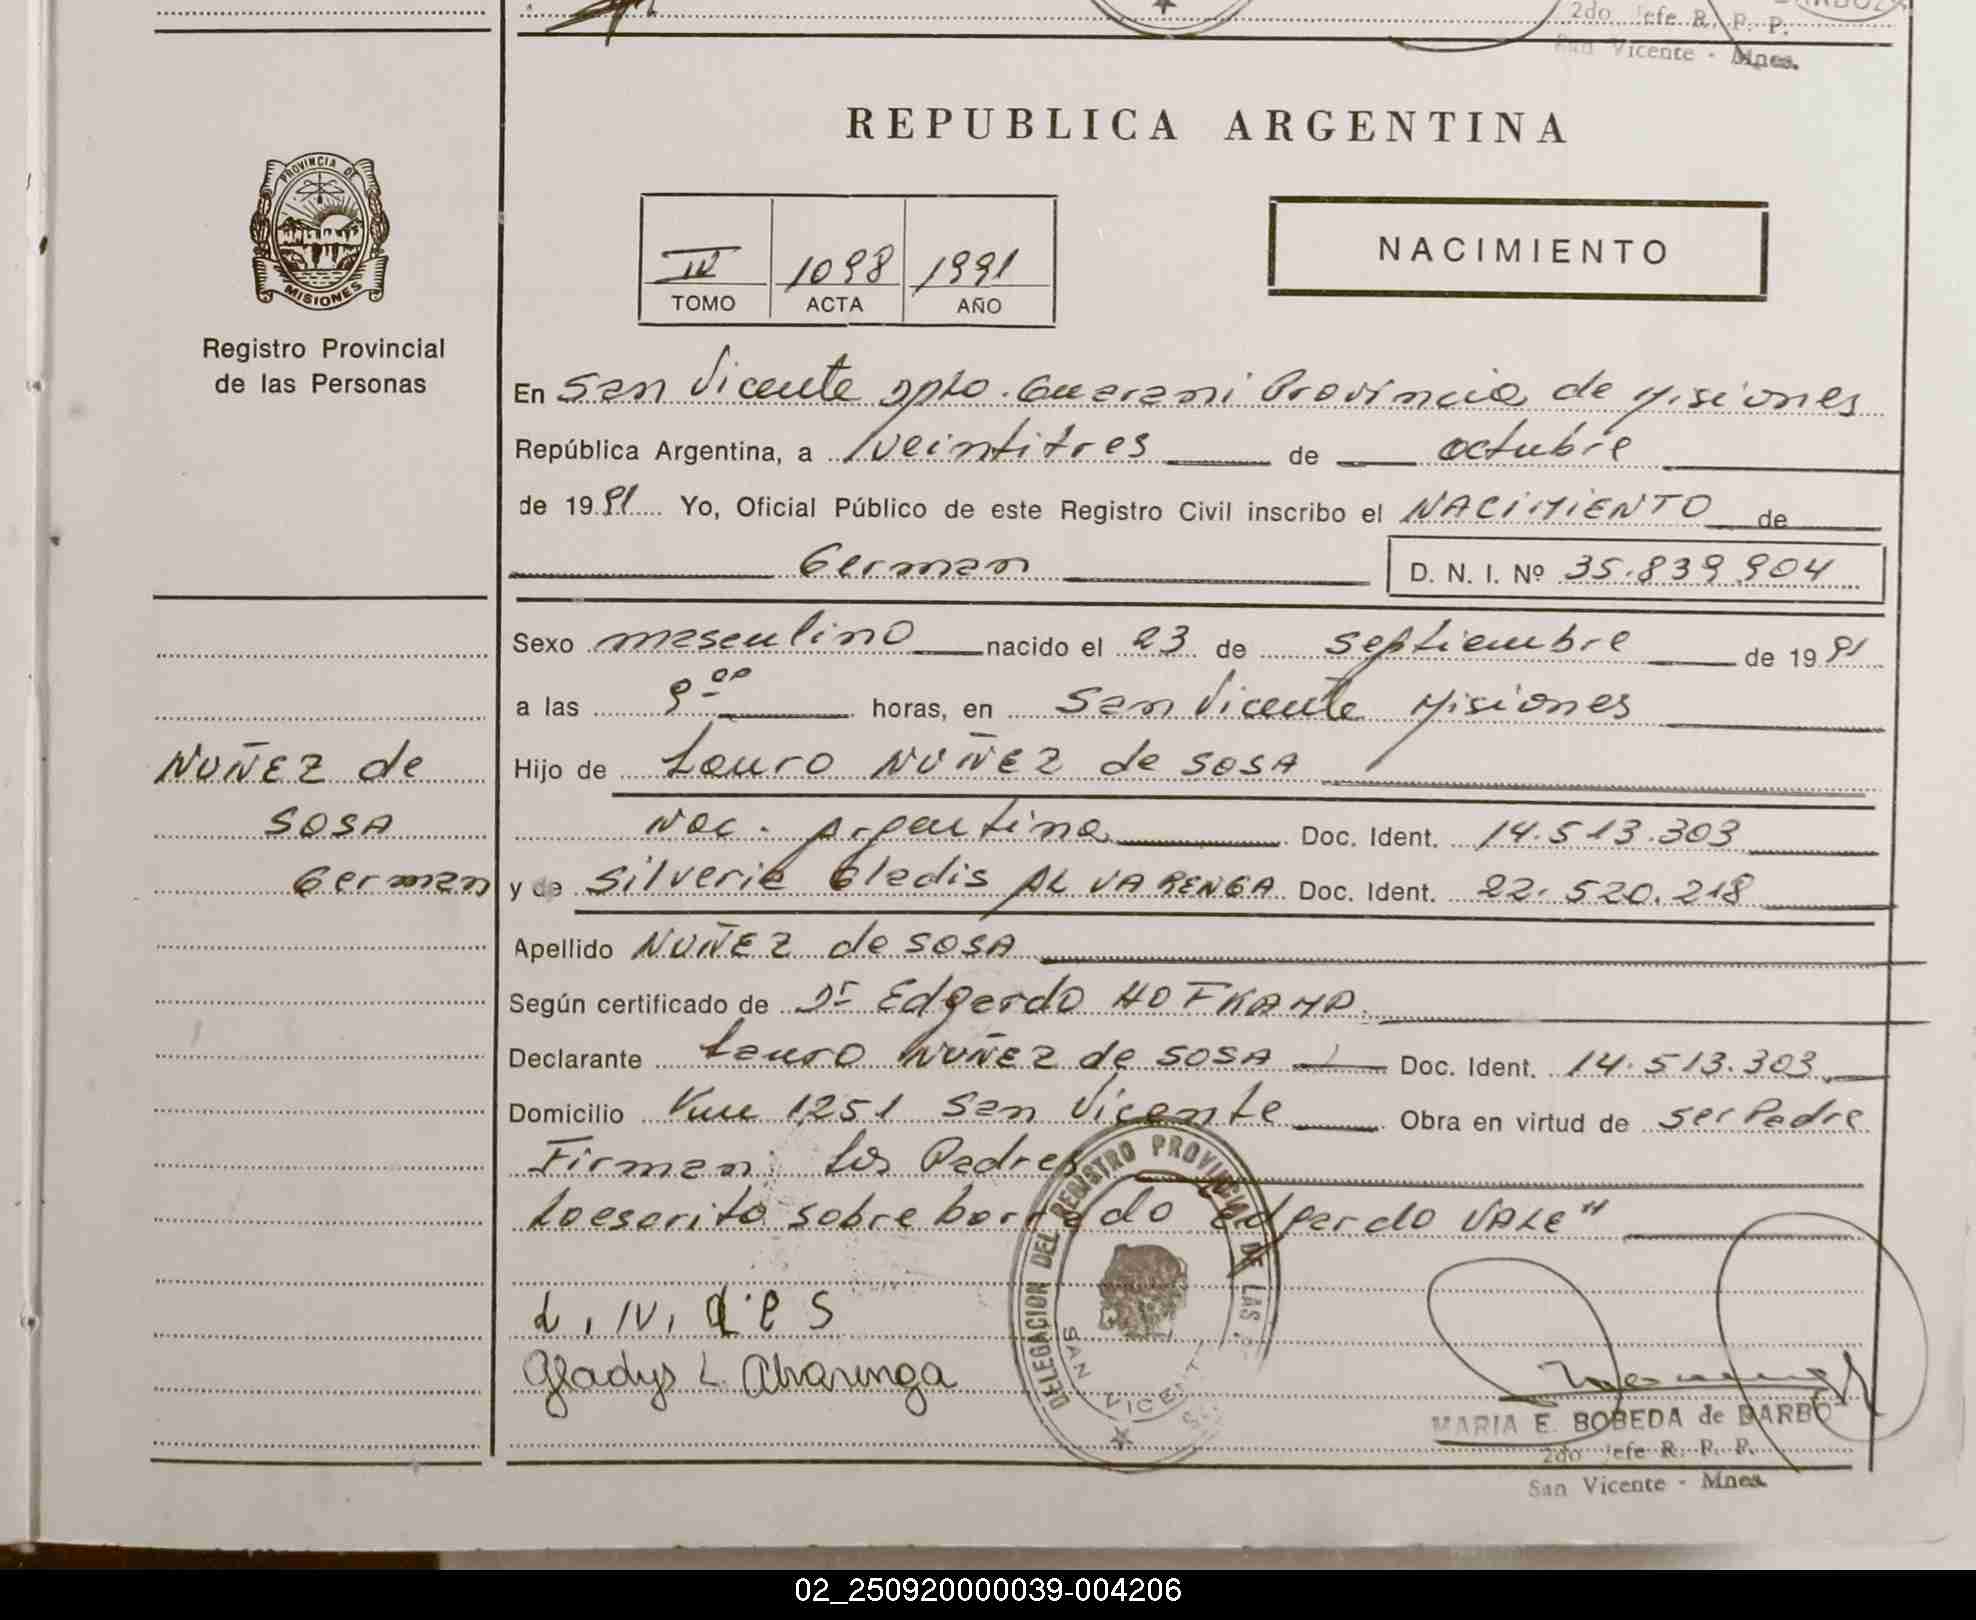 2do Jefe R. P. P.
San Vicente - Mnes.
REPUBLICA ARGENTINA
PROVINCIA DE
MISIONES
Registro Provincial
de las Personas
IV 1098 1991
TOMO ACTA AÑO
NACIMIENTO
En San Vicente Dpto. Guarani Provincia de Misiones
República Argentina, a veintitres de octubre
de 1991 Yo, Oficial Público de este Registro Civil inscribo el NACIMIENTO de
German D. N. I. Nº 35.839.904
Sexo masculino nacido el 23 de septiembre de 1991
a las 9 00 horas, en San Vicente Misiones
NUÑEZ de
SOSA
German
Hijo de Lauro NUÑEZ de SOSA
Nac. Argentina Doc. Ident. 14.513.303
y de Silveria Gladis ALVARENGA Doc. Ident. 22.520.218
Apellido NUÑEZ de SOSA
Según certificado de Dr Edgardo HOFKAMP.
Declarante Lauro NUÑEZ de SOSA Doc. Ident. 14.513.303
Domicilio Km 1251 San Vicente Obra en virtud de ser Padre
Firman: Los Padres
Lo escrito sobre borrado Edgardo VALE"
DELEGACION DEL REGISTRO PROVINCIAL DE LAS
SAN VICENTE
L. N. d e S
Gladys L. Alvarenga
MARIA E. BOBEDA de BARBO
2do Jefe R. P. P.
San Vicente - Mnes.
02_250920000039-004206